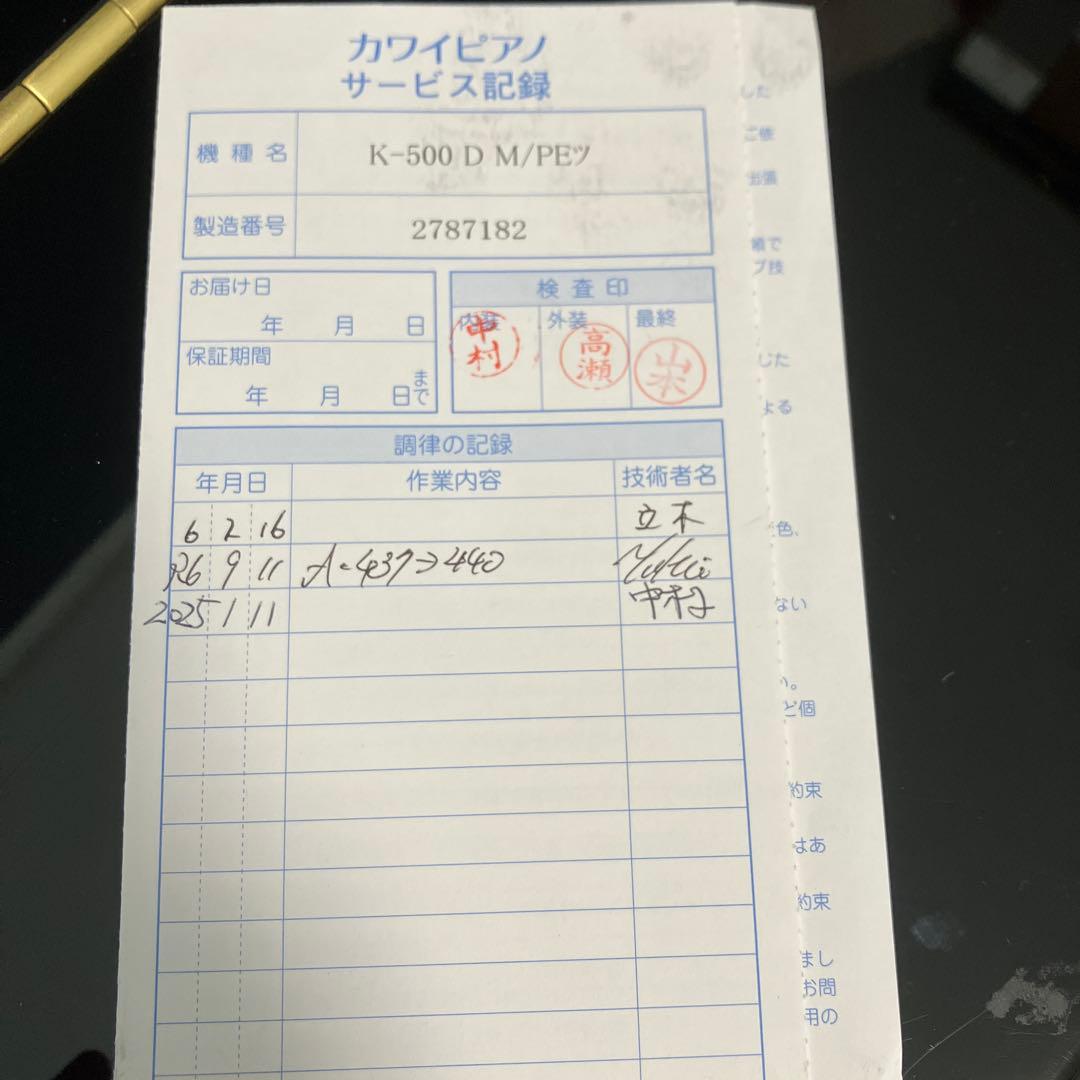 カワイピアノ
サービス記録
機種名 K-500 D M/PEツ
製造番号 2787182
お届け日
年 月 日
保証期間
年 月 日まで
検査印
内装 外装 最終
中村 高瀬
調律の記録
年月日 作業内容 技術者名
6 2 16 立木
R6 9 11 A=437⇒440
2025 1 11 中村
した
ご依
出張
頼で
プ技
じた
よる
色、
ない
い。
ど個
約束
はあ
約束
まし
お問
用の